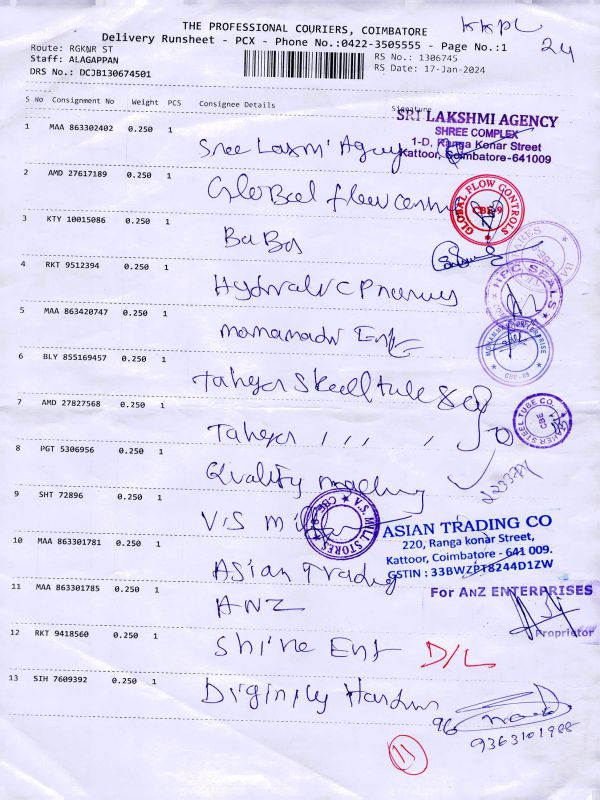 THE PROFESSIONAL COURIERS, COIMBATORE
KKPL
Delivery Runsheet - PCX - Phone No.:0422-3505555 - Page No.:1
24
Route: RGKNR ST
RS No.: 1306745
Staff: ALAGAPPAN
RS Date: 17-Jan-2024
DRS No.: DCJB130674501
S No Consignment No Weight PCS Consignee Details Signature
SRI LAKSHMI AGENCY
SHREE COMPLEX
1-D, Ranga Konar Street
Kattoor, Coimbatore-641009
1 MAA 863302402 0.250 1
Sree Laxmi Agency
2 AMD 27617189 0.250 1
Global flow
GLOBAL FLOW CONTROLS
CBE-9
3 KTY 10015086 0.250 1
BaBa
4 RKT 9512394 0.250 1
HPC SEALS
5 MAA 863420747 0.250 1
Ent
CBE - 09
6 BLY 855169457 0.250 1
7 AMD 27827568 0.250 1
TAHER STEEL TUBE CO.
CBE
8 PGT 5306956 0.250 1
Quality
9 SHT 72896 0.250 1
V.S mill
V.S. MILL STORES
CBE-9
ASIAN TRADING CO
220, Ranga konar Street,
Kattoor, Coimbatore - 641 009.
GSTIN : 33BWZPT8244D1ZW
10 MAA 863301781 0.250 1
Asian Trading
11 MAA 863301785 0.250 1
ANZ
For AnZ ENTERPRISES
Proprietor
12 RKT 9418560 0.250 1
Shine Ent D/L
13 SIH 7609392 0.250 1
9363101988
11